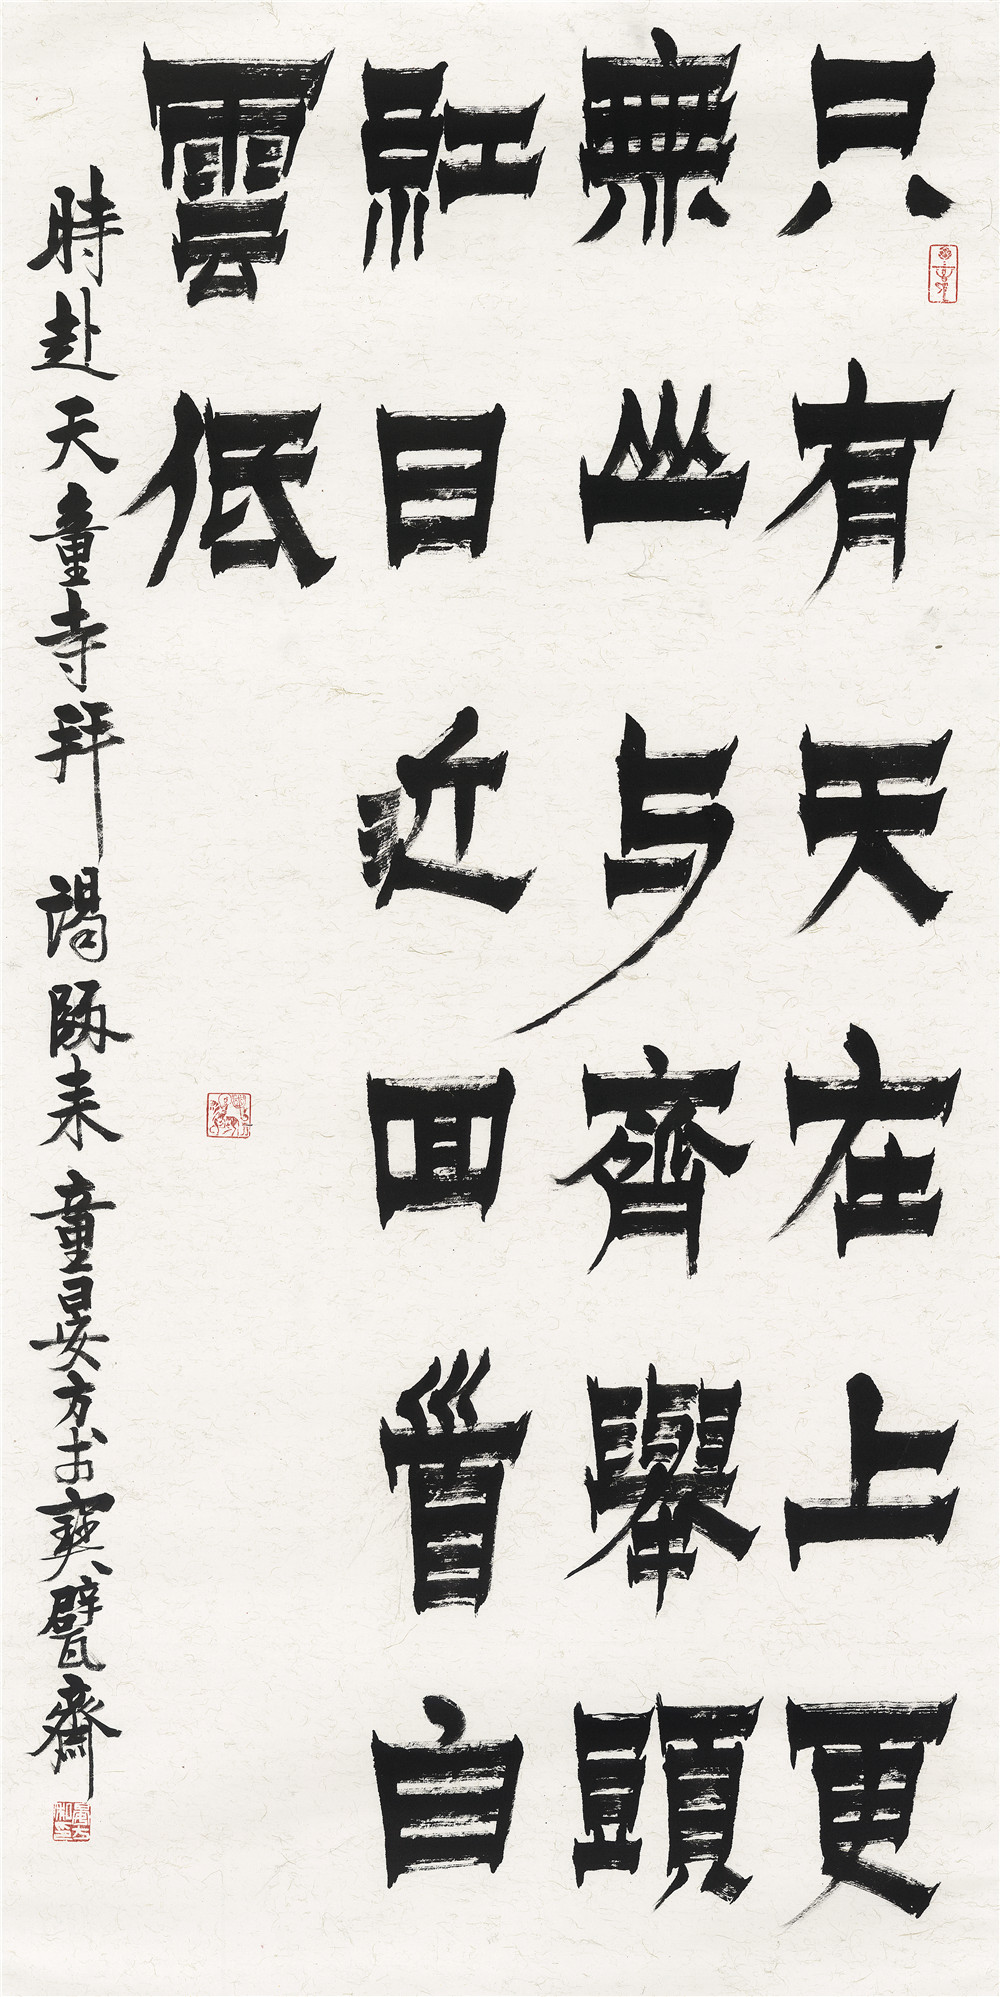 只有天在上更
無山与齊舉頭
紅日近回首白
雲低
時赴天童寺拜謁師来童晏方於寶甓齋